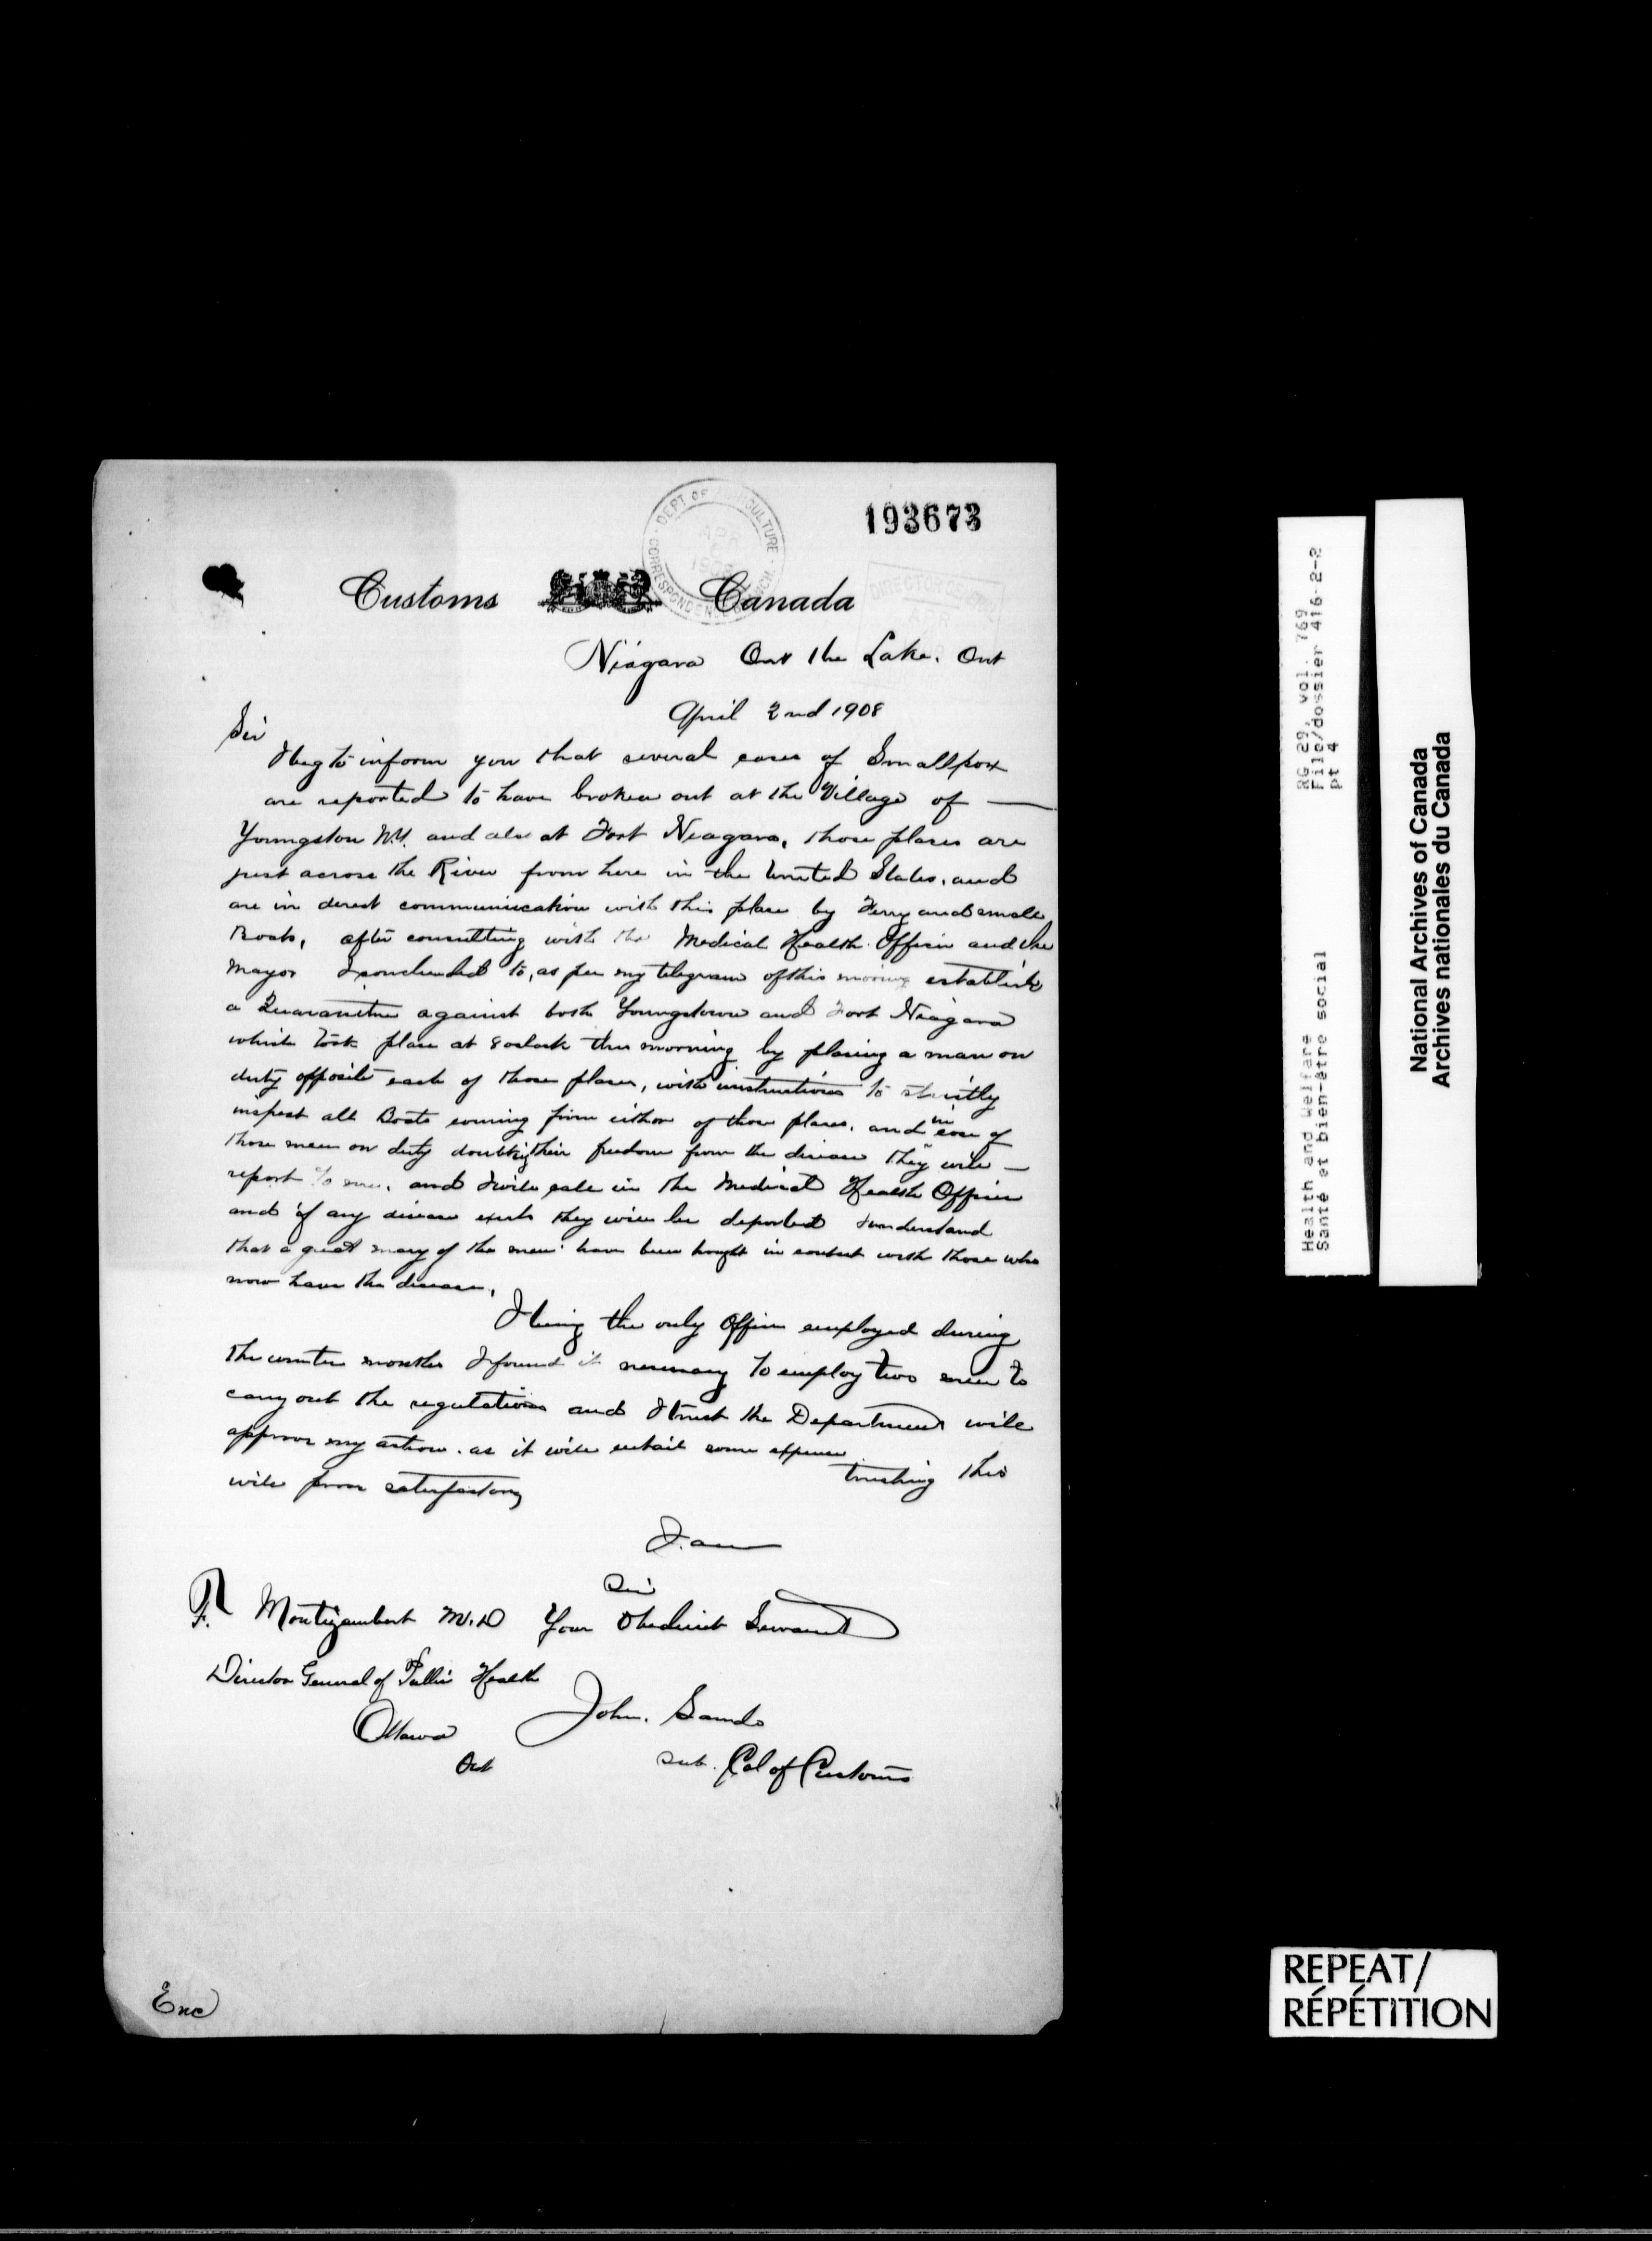 193673
DEPT OF AGRICULTURE
CORRESPONDENCE BRANCH.
APR
1908
DIRECTOR GENERAL
APR
Customs Canada
Niagara On the Lake. Ont
April 2nd 1908
Sir
I beg to inform you that several cases of Smallpox
are reported to have broken out at the Village of —
Youngston N.Y. and also at Fort Niagara, those places are
just across the River from here in the United States, and
are in direct communication with this place by Ferry and small
Boats, after consulting with the Medical Health Officer and the
Mayor I concluded to, as per my telegram of this morning establish
a Quarantine against both Youngstown and Fort Niagara
which took place at 8 oclock this morning by placing a man on
duty opposite each of those places, with instructions to strictly
inspect all Boats coming from either of those places, and in case of
those men on duty doubting their freedom from the disease they will —
report to me, and I will call in the Medical Health Officer
and if any disease exists they will be deported I understand
that a great many of the men have been brought in contact with those who
now have the disease,
I being the only Officer employed during
the winter months I found it necessary to employ two men to
carry out the regulations and I trust the Department will
approve my action. as it will entail some expense
trusting this
will prove satisfactory
I. am
Sir
F. Montizambert M.D Your Obedient Servant
Director General of Public Health
John. Sando
Ottawa
Ont
Sub. Col of Customs
Enc
RG 29, vol. 769
File/dossier 416-2-2
pt 4
Health and Welfare
Santé et bien-être social
National Archives of Canada
Archives nationales du Canada
REPEAT/
RÉPÉTITION